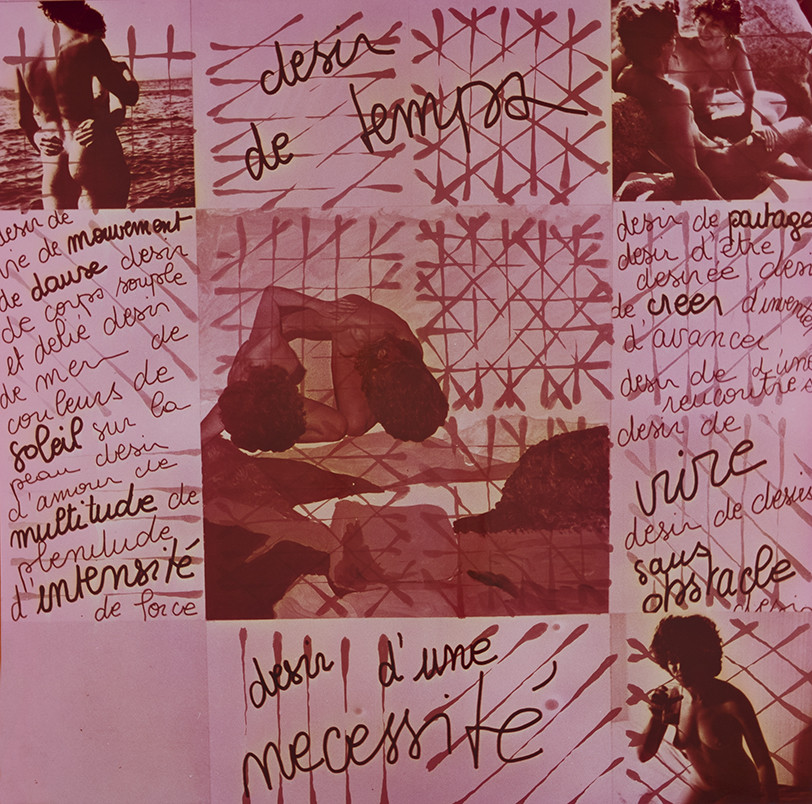 desir
de temps
desir de
vie de mouvement
de danse desir
de corps souple
et delié desir
de mer de
couleurs de
soleil sur la
peau desir
d'amour de
multitude de
plenitude
d'intensité
de force
desir de partage
desir d'être
desirée desir
de creer d'invent
d'avancer
desir de d'une
rencontre
desir de
vivre
desir de desir
sans
obstacle
desir
desir d'une
necessité